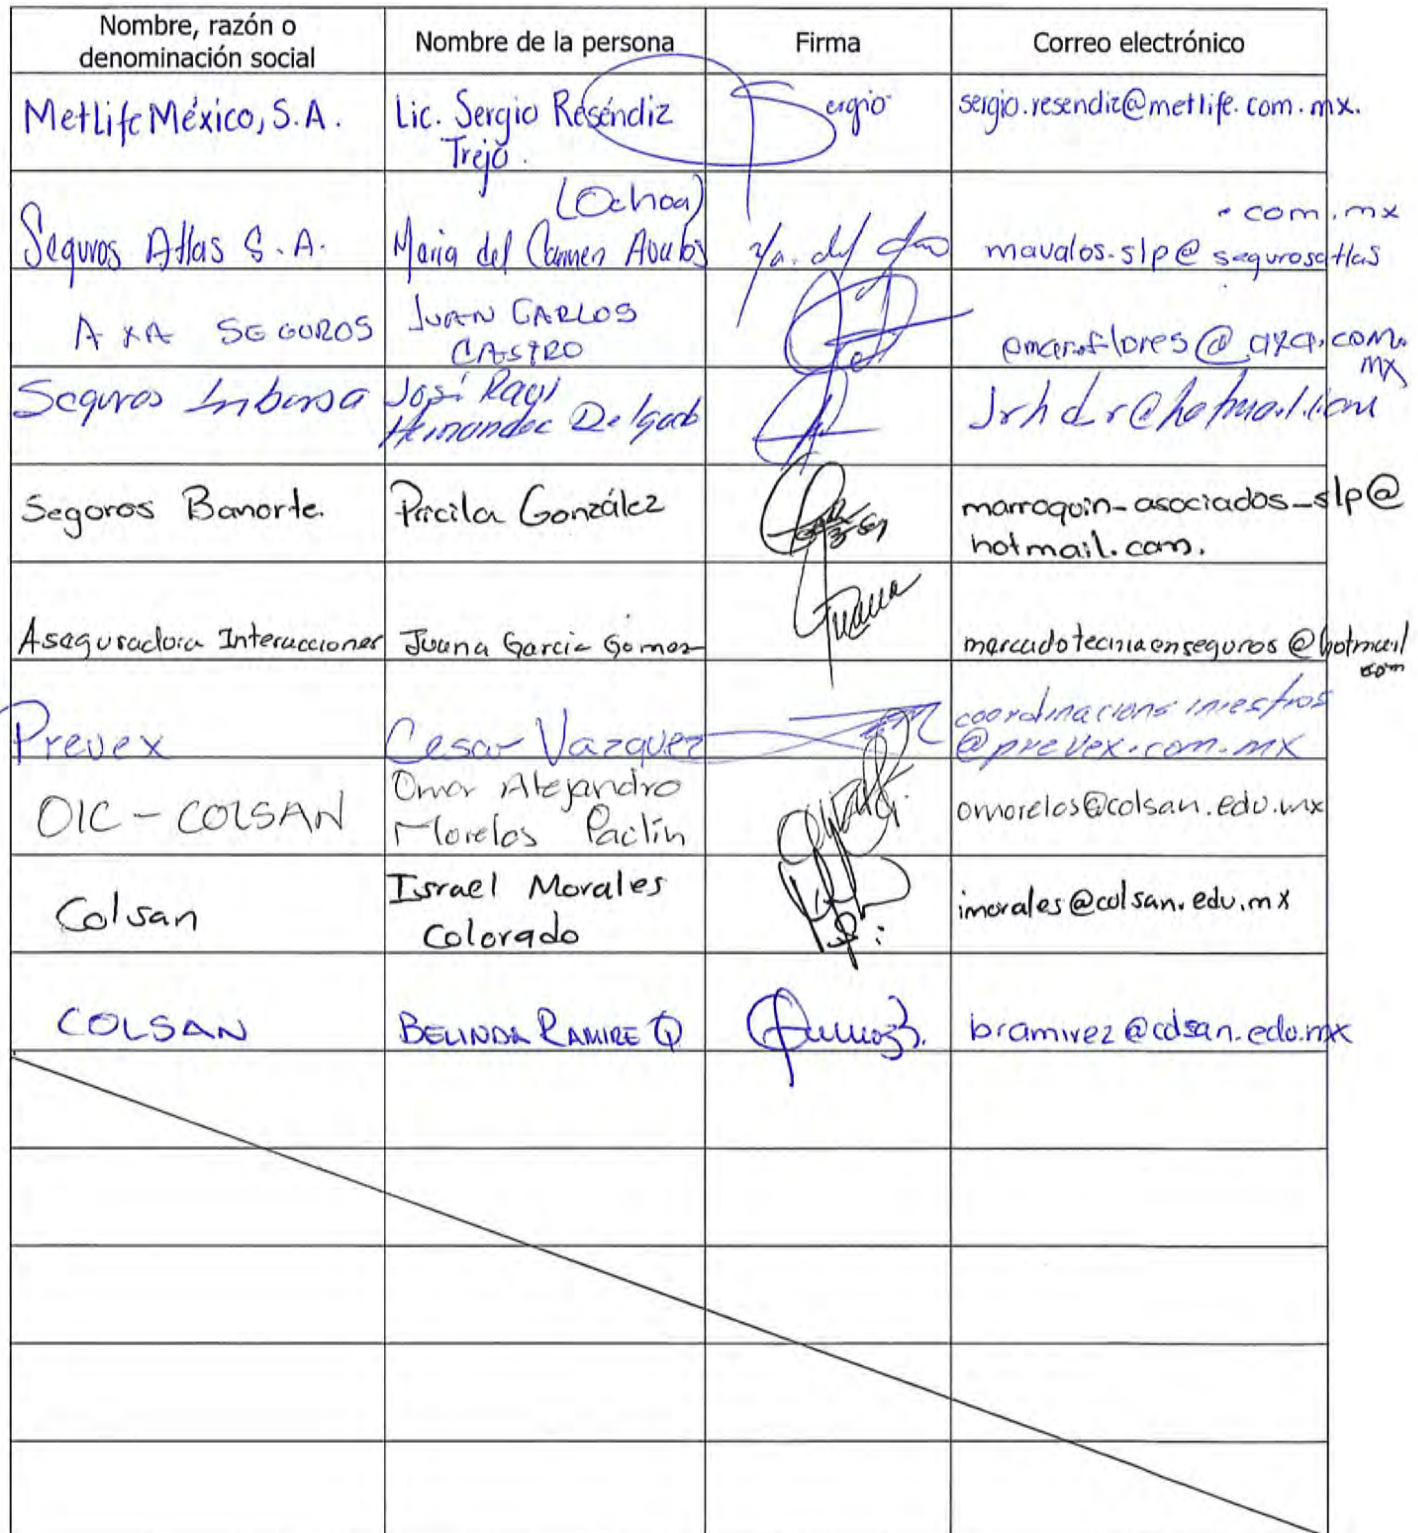 Nombre, razón o
denominación social
Nombre de la persona
Firma
Correo electrónico
MetLife México, S.A.
Lic. Sergio Reséndiz
Trejo.
Sergio
sergio.resendiz@metlife.com.mx.
Seguros Atlas S.A.
(Ochoa)
Maria del Carmen Avalos
Ma. del
.com.mx
mavalos.slp@segurosatlas
AXA SEGUROS
JUAN CARLOS
CASTRO
omar.flores@axa.com.
mx
Seguros Inbursa
José Raul
Hernandez Delgado
Jrhdr@hotmail.com
Seguros Banorte.
Pricila González
marroquin-asociados_slp@
hotmail.com.
Aseguradora Interacciones
Juana Garcia Gomez
Juana
mercadotecniaenseguros@hotmail
com
Prevex
Cesar Vazquez
coordinacionsiniestros
@prevex.com.mx
OIC - COLSAN
Omar Alejandro
Morelos Paclín
omorelos@colsan.edu.mx
Colsan
Israel Morales
Colorado
imorales@colsan.edu.mx
COLSAN
BELINDA RAMIREZ Q
bramirez@colsan.edu.mx